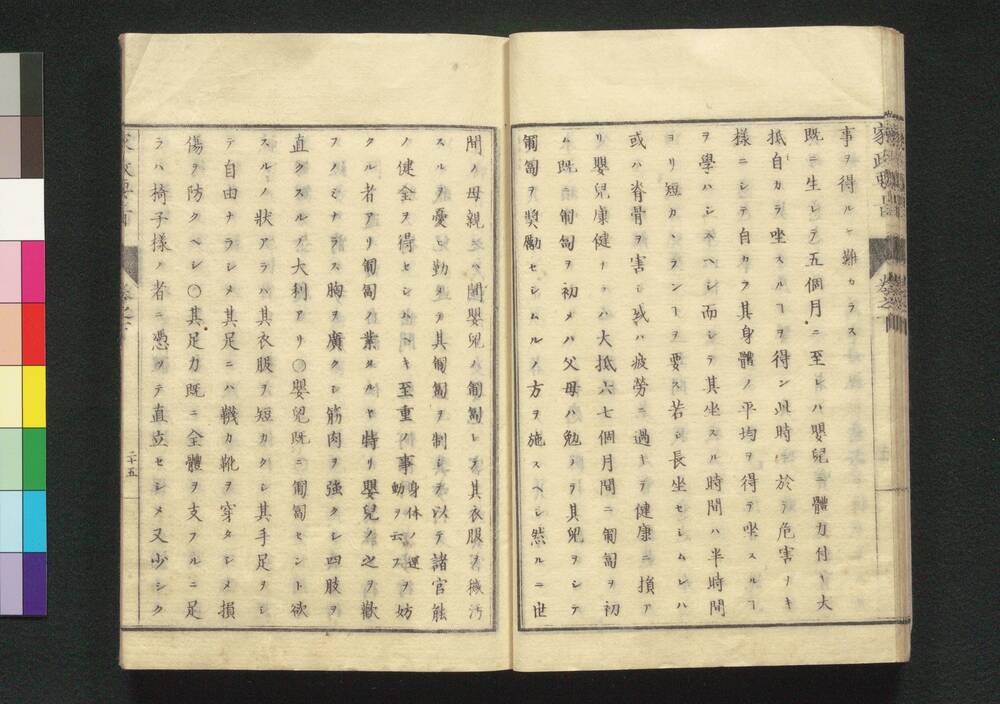 事ヲ得ル丶難カラス
既ニ生レテ五個月ニ至レハ嬰兒ニ體力付キ大
抵自カラ坐スルヿヲ得ン此時ニ於テ危害ヲキ
樣ニシテ自カラ其身體ノ平均ヲ得テ坐スルヿ
ヲ學ハシムヘシ而シテ其坐スル時間ハ半時間
ヨリ短カヽランヿヲ要ス若シ長坐セシムレハ
或ハ脊骨ヲ害シ或ハ疲勞ニ過キテ健康ニ損ア
リ嬰兒康健ナレハ大抵六七個月間ニ匍匐ヲ初
ム既ニ匍匐ヲ初メハ父母ハ勉メテ其兒ヲシテ
匍匐ヲ奬勵セシムルノ方ヲ施スヘシ然ルニ世
間ノ母親ニハ間嬰兒ノ匍匐シテ其衣服ヲ穢汚
スルヲ憂ヒ勤メテ其匍匐ヲ制シテ以テ諸官能
ノ健全ヲ得セシムヘキ至重ノ事身体ノ運動ヲ云フヲ妨
クル者アリ匍匐ノ業タルヤ特リ嬰兒ノ之ヲ歡
フノミナラス胸ヲ廣クシ筋肉ヲ強クシ四肢ヲ
直クスルノ大利アリ〇嬰兒既ニ匍匐セント欲
スルノ狀アラハ其衣服ヲ短カクシ其手足ヲシ
テ自由ナラシメ其足ニハ韈カ靴ヲ穿タシメ損
傷ヲ防クヘシ〇其足力既ニ全體ヲ支フルニ足
ラハ椅子樣ノ者ニ憑リテ直立セシメ又少シク
二十五